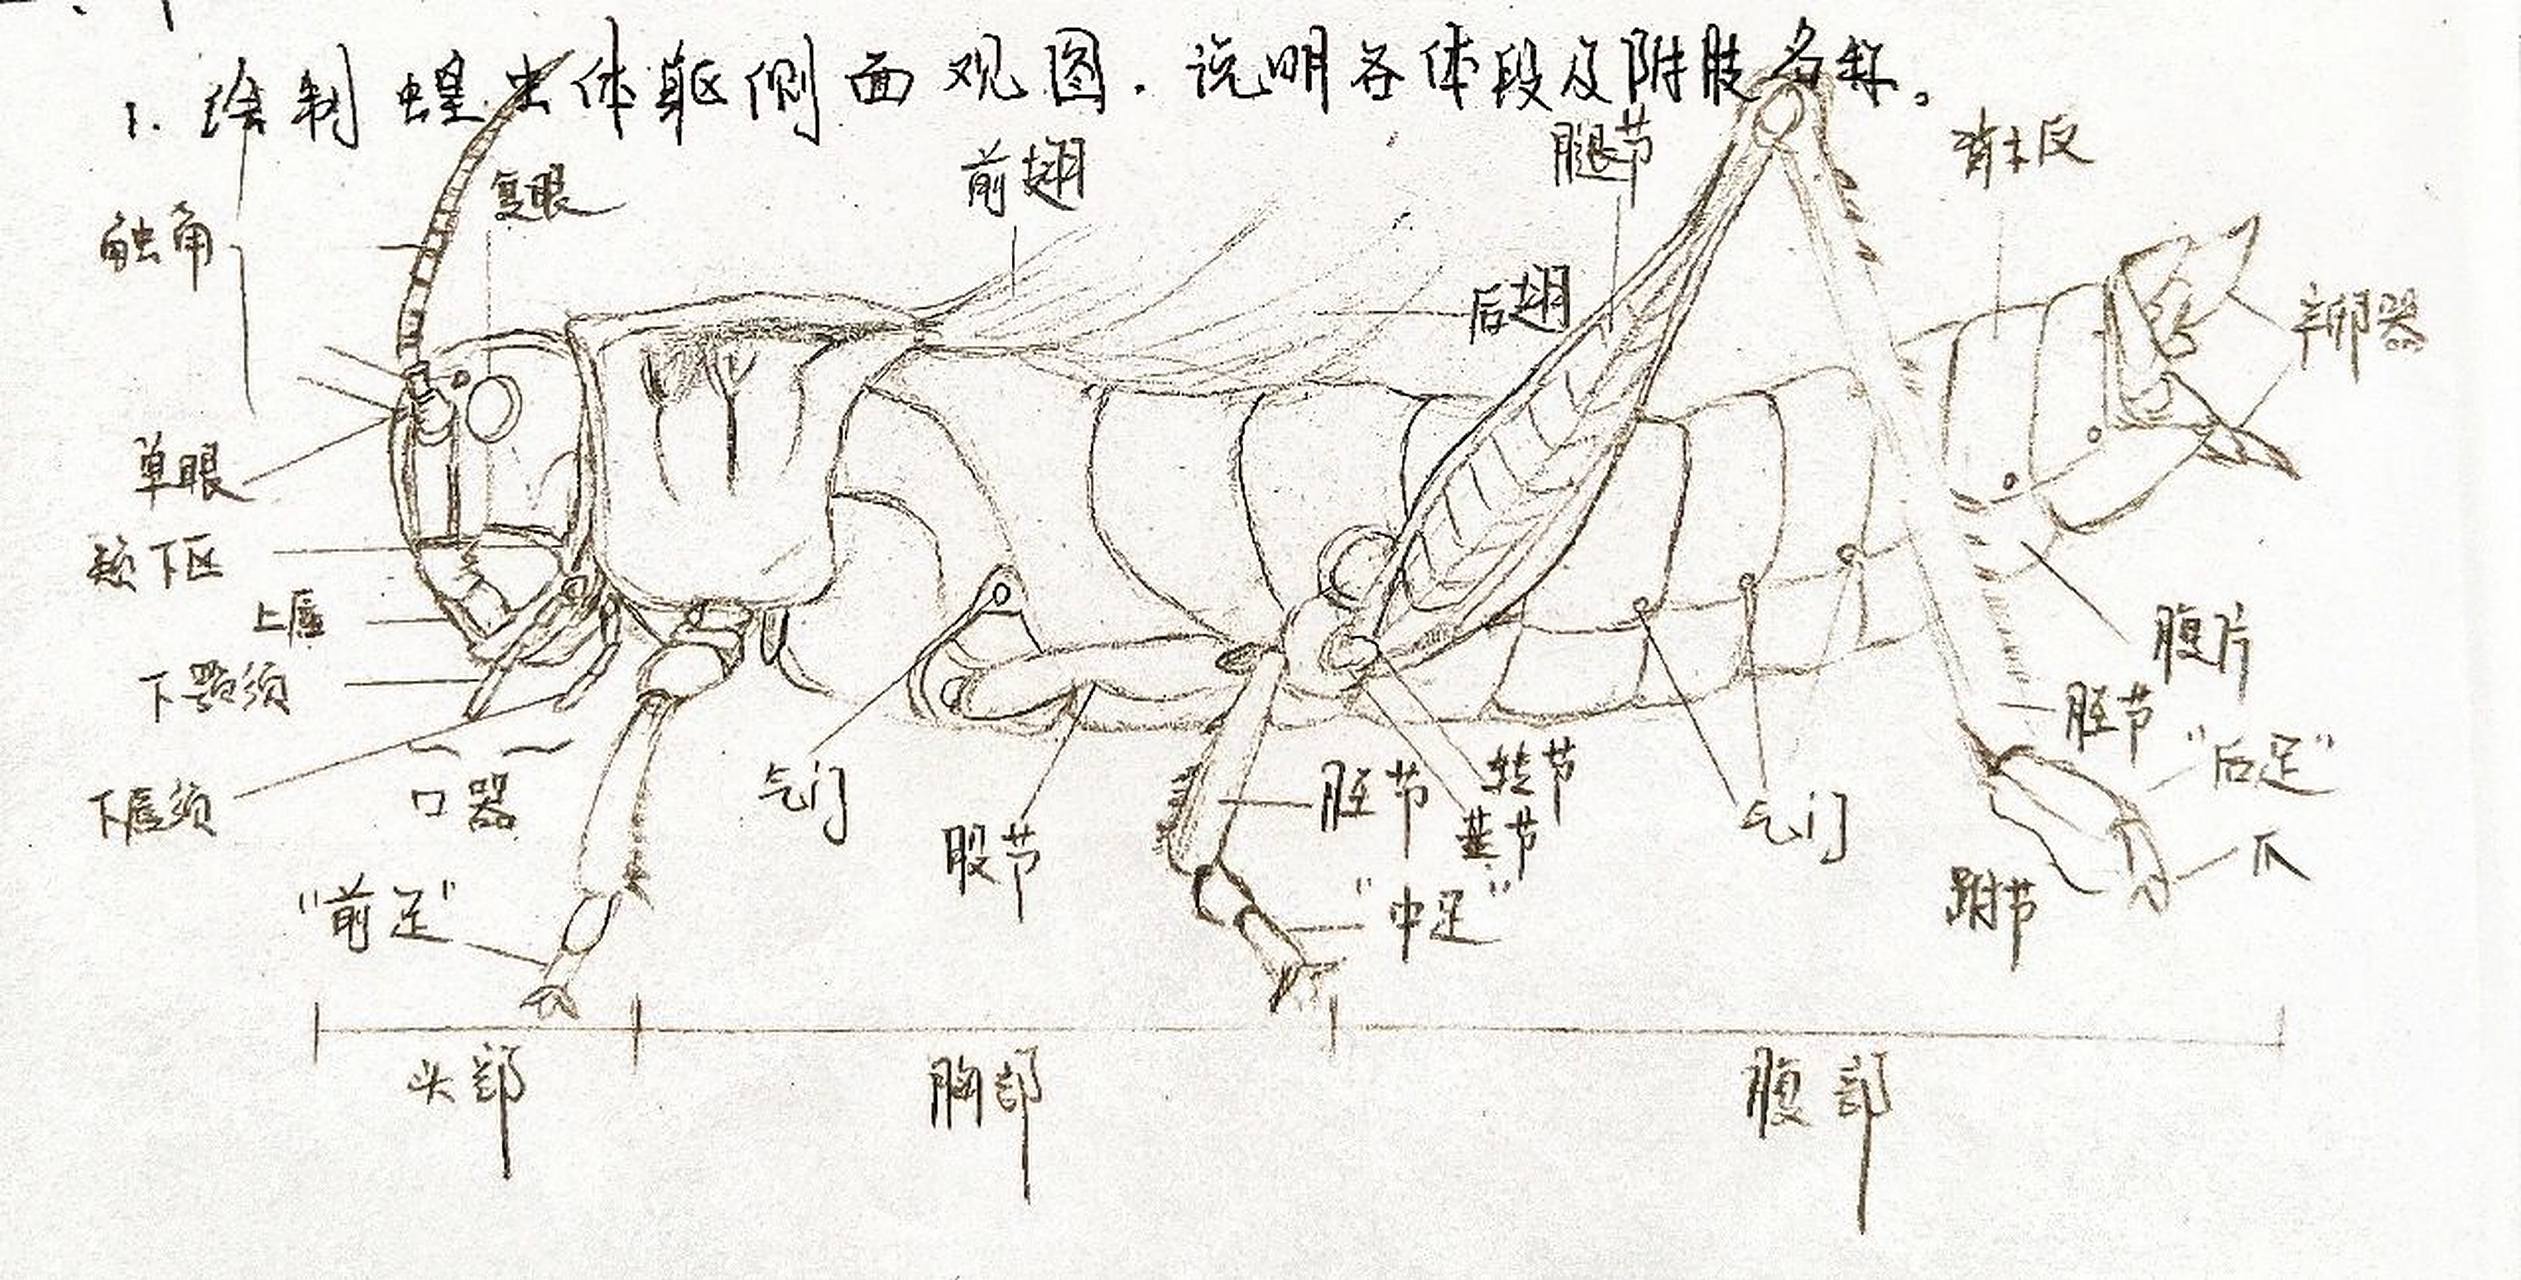 1. 绘制蝗虫体躯侧面观图.说明各体段及附肢名称。
触角
复眼
前翅
腿节
背板
后翅
产卵器
单眼
颏下区
上唇
下颚须
下唇须
口器
"前足"
气门
股节
胫节
转节
基节
"中足"
气门
腹片
胫节
"后足"
爪
跗节
头部
胸部
腹部